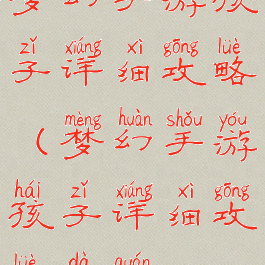 zǐ xiáng xì gōng lüè
子详细攻略
mèng huàn shǒu yóu
（梦幻手游
hái zǐ xiáng xì gōng
孩子详细攻
lüè dà quán